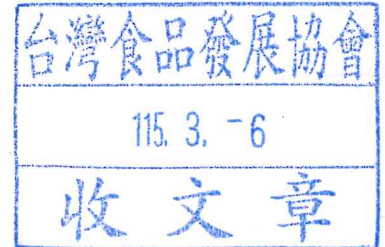 台灣食品發展協會
115. 3. -6
收文章